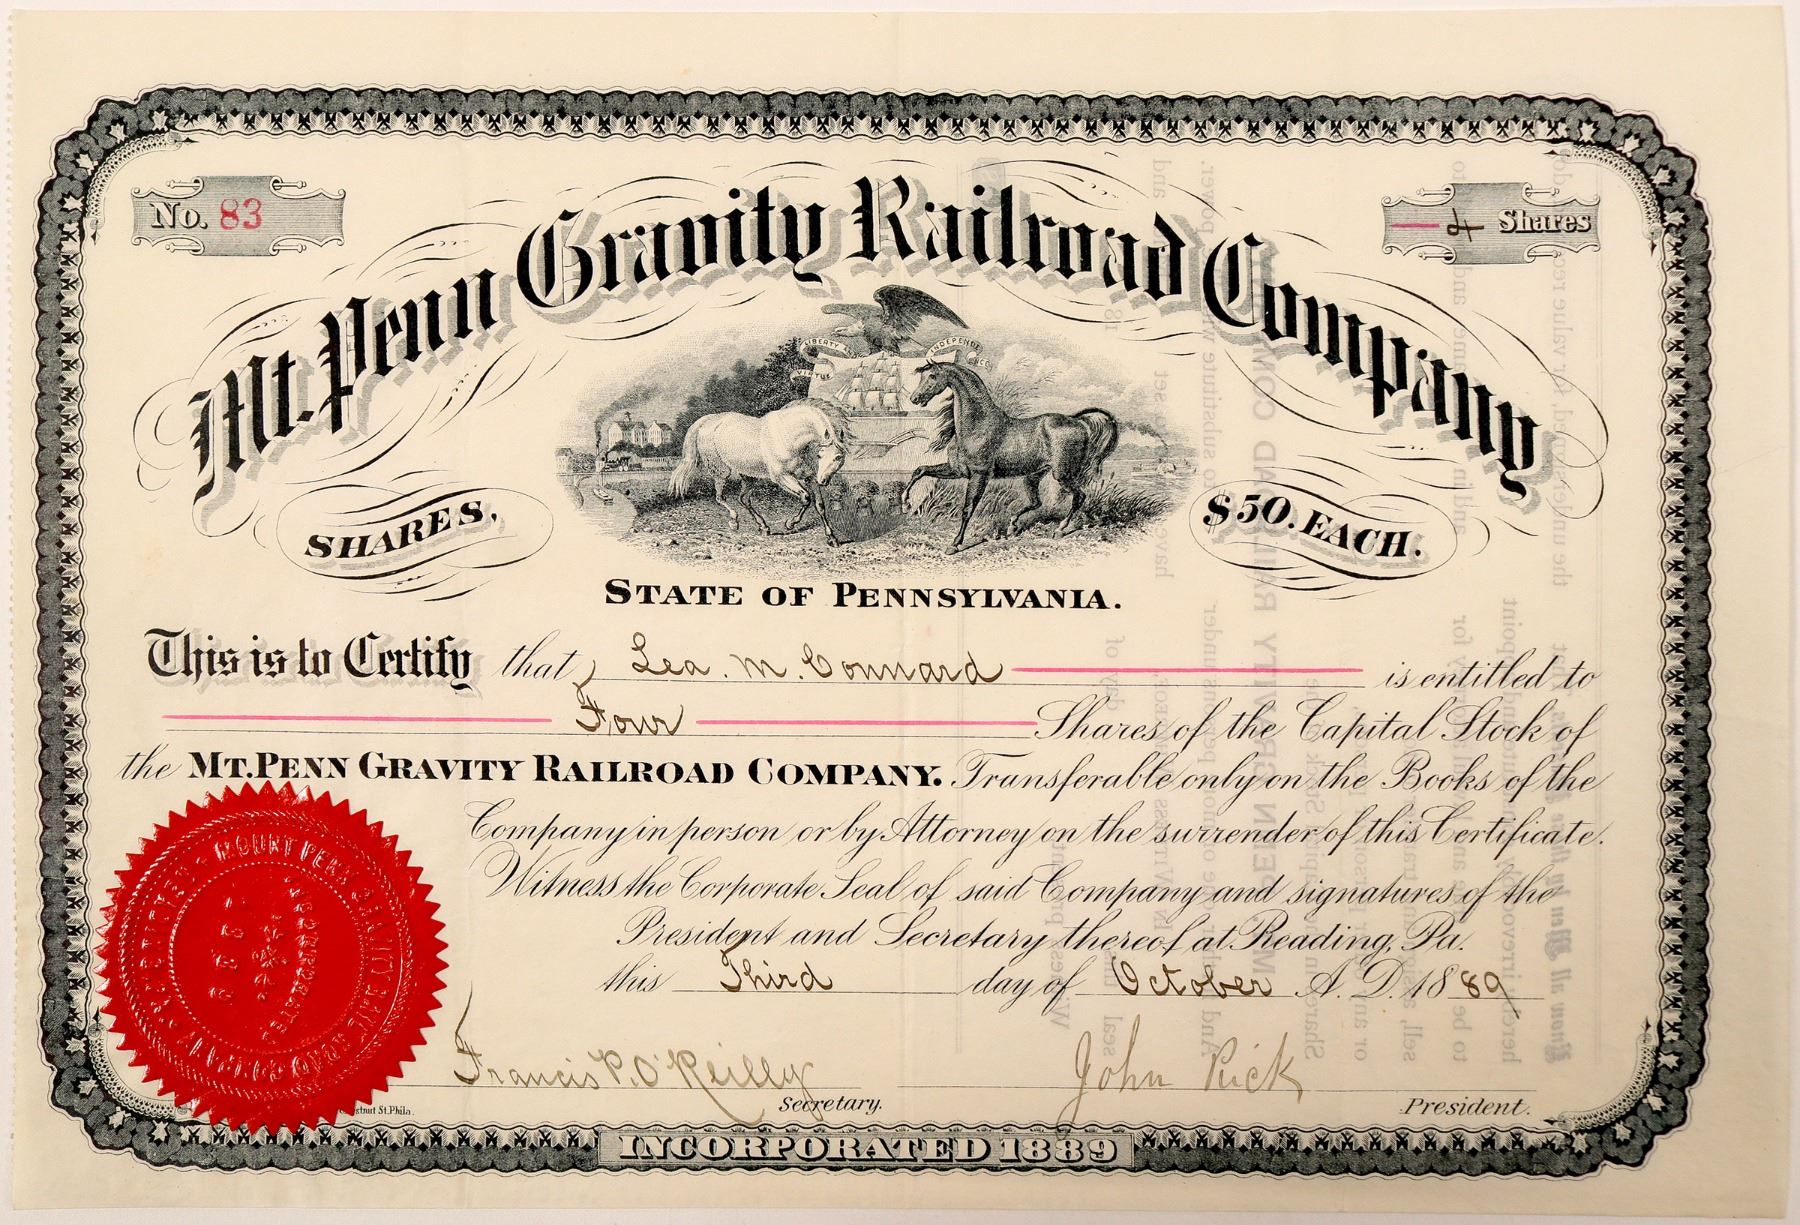 No. 83
4 Shares
Mt. Penn Gravity Railroad Company
LIBERTY AND
INDEPENDENCE
VIRTUE
SHARES,
$50. EACH.
STATE OF PENNSYLVANIA.
This is to Certify that Lea. M. Connard is entitled to
Four Shares of the Capital Stock of
the MT. PENN GRAVITY RAILROAD COMPANY. Transferable only on the Books of the
Company in person or by Attorney on the surrender of this Certificate.
Witness the Corporate Seal of said Company and signatures of the
President and Secretary thereof at Reading, Pa.
this Third day of October A. D. 1889
MOUNT PENN GRAVITY RAIL ROAD COMPANY
INCORPORATED
1889
Francis P. O'Reilly
Secretary.
John Rick
President.
St. Phila.
INCORPORATED 1889